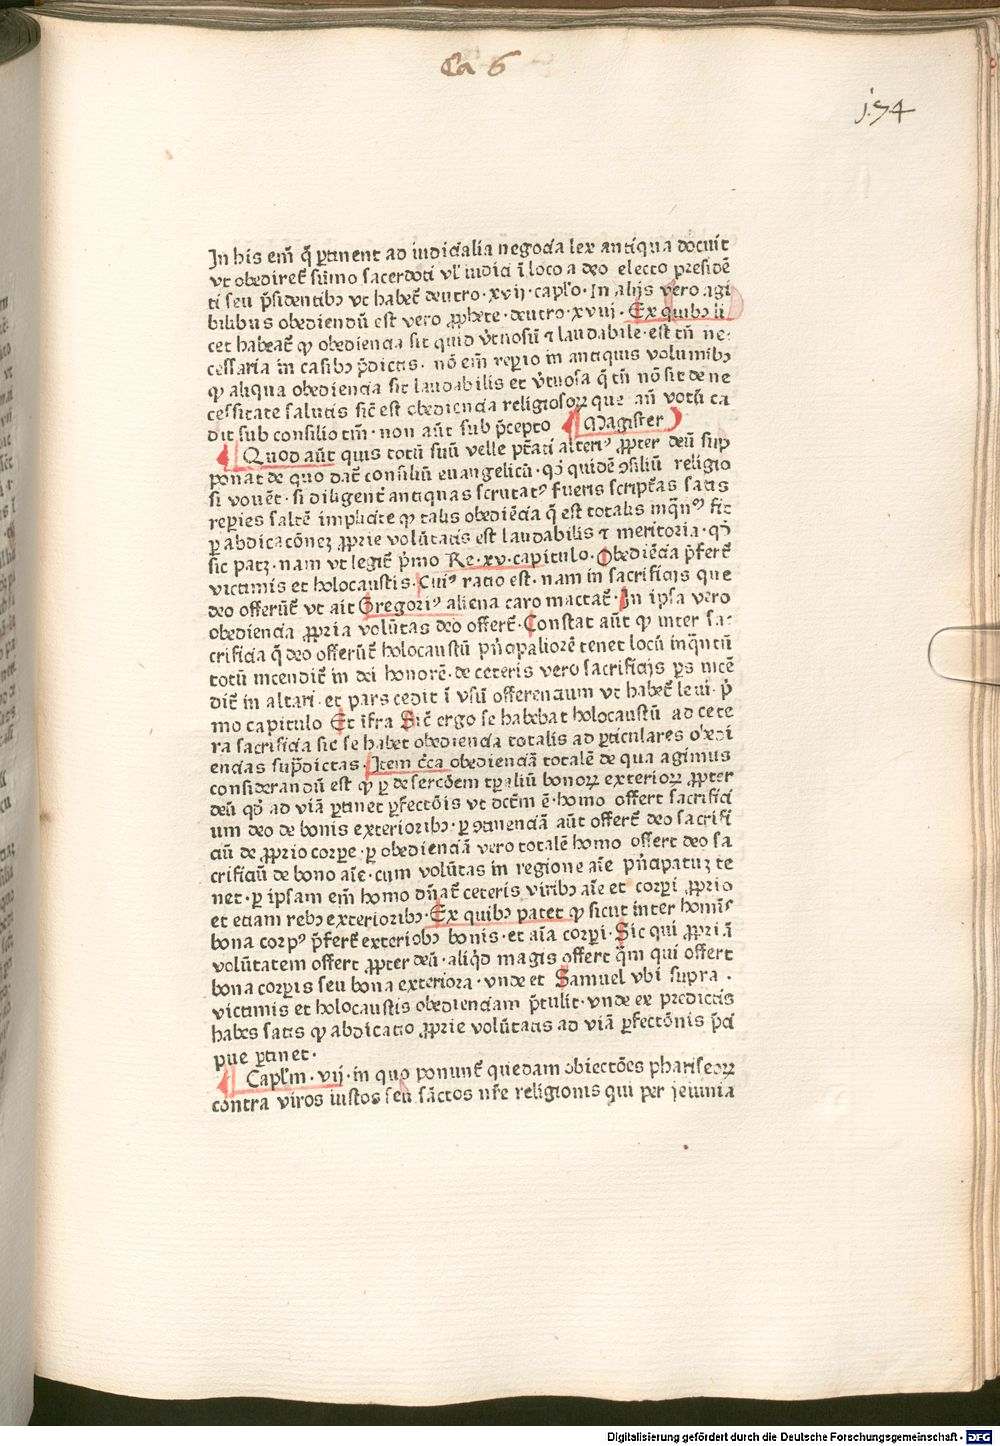 Ca 6
174
In his em̄ q̄ ꝑtinent ad iudicialia negocia lex antiqua docuit
vt obediret᷒ sūmo sacerdoti vl̕ iudici ī loco a deo electo presidē
ti seu p̄sidentibꝫ vt habet᷒ deutro·xvij·capl̕o·In alijs vero agi
bilibus obediendū est vero ꝓphete·deutro·xviij·Ex quibꝫ li
cet habeat᷒ ꝙ obediencia sit quid v̕tuosū ⁊ laudabile·est tn̄ ne-
cessaria in casibꝫ p̄dictis· nō em̄ reꝑio in antiquis voluminibꝫ
ꝙ aliqua obediencia sit laudabilis et v̕tuosa q̄ tn̄ nō sit de ne
cessitate salutis sic̄ est obediencia religiosoꝝ que añ votū ca
dit sub consilio tm̄·non aūt sub p̄cepto Magister
Quod aūt quis totū suū velle pt̄ati alteriꝰ ꝓpter deū sup
ponat de quo dat᷒ consiliū euangelicū·qđ quidē ꝯsiliū religio
si vouēt·si diligent᷒ antiquas scrutatꝰ fueris script̄as satis
reꝑies saltē implicite ꝙ talis obediēcia q̄ est totalis inq̄nꝰ fit
ꝑ abdicacōnēꝫ ꝓprie volūtatis est laudabilis ⁊ meritoria·qđ
sic patꝫ·nam vt legit᷒ p̄mo Re·xv·capitulo·Obediēcia p̄fert᷒
victimis et holocaustis·Cuiꝰ ratio est·nam in sacrificijs que
deo offerūt᷒ vt ait Gregoriꝰ aliena caro mactat᷒·In ipsa vero
obediencia ꝓpria volūtas deo offert᷒·Constat aūt ꝙ inter sa-
crificia q̄ deo offerūt᷒ holocaustū pn̄cipaliorē tenet locū inq̄ntū
totū incendit᷒ in dei honorē·de ceteris vero sacrificijs ꝑs incē
dit᷒ in altari·et pars cedit ī vsū offerencium vt habet᷒ leui·p̄
mo capitulo Et īfra Sic̄ ergo se habebat holocaustū ad cete
ra sacrificia sic se habet obediencia totalis ad ꝑticulares obedi
encias sup̄dictas·Item c̄ca obedienciā totalē de qua agimus
considerandū est ꝙ ꝑ desercōem tꝑaliū bonoꝝ exterioꝝ ꝓpter
deū qđ ad viā ꝑtinet ꝑfectōis vt dictm̄ ē·homo offert sacrifici
um deo de bonis exterioribꝫ·ꝑ ꝯtinenciā aūt offert᷒ deo sacrifi
ciū de ꝓprio corꝑe·ꝑ obedienciā vero totalē homo offert deo sa
crificiū de bono aīe·cum volūtas in regione aīe pn̄cipatuꝫ te
net·ꝑ ipsam em̄ homo dn̄at᷒ ceteris viribꝫ aīe et corpri ꝓprio
et eciam rebꝫ exterioribꝫ·Ex quibꝫ patet ꝙ sicut inter homīs
bona corpꝰ p̄fert᷒ exteriobꝫ bonis·et aīa corꝑi·Sic qui ꝓpriā
volūtatem offert ꝓpter deū·aliqđ magis offert q̄m qui offert
bona corꝑis seu bona exteriora·vnde et Samuel vbi supra ·
victimis et holocaustis obedienciam p̄tulit·vnde ex predictis
habes satis ꝙ abdicatio ꝓprie volūtatis ad viā ꝑfectōnis p̄ci
pue ꝑtinet·
Capl̕m·vij·in quo ponunt᷒ quedam obiectōes phariseoꝝ
contra viros iustos seu sāctos nr̄e religionis qui per ieiunia
Digitalisierung gefördert durch die Deutsche Forschungsgemeinschaft - DFG